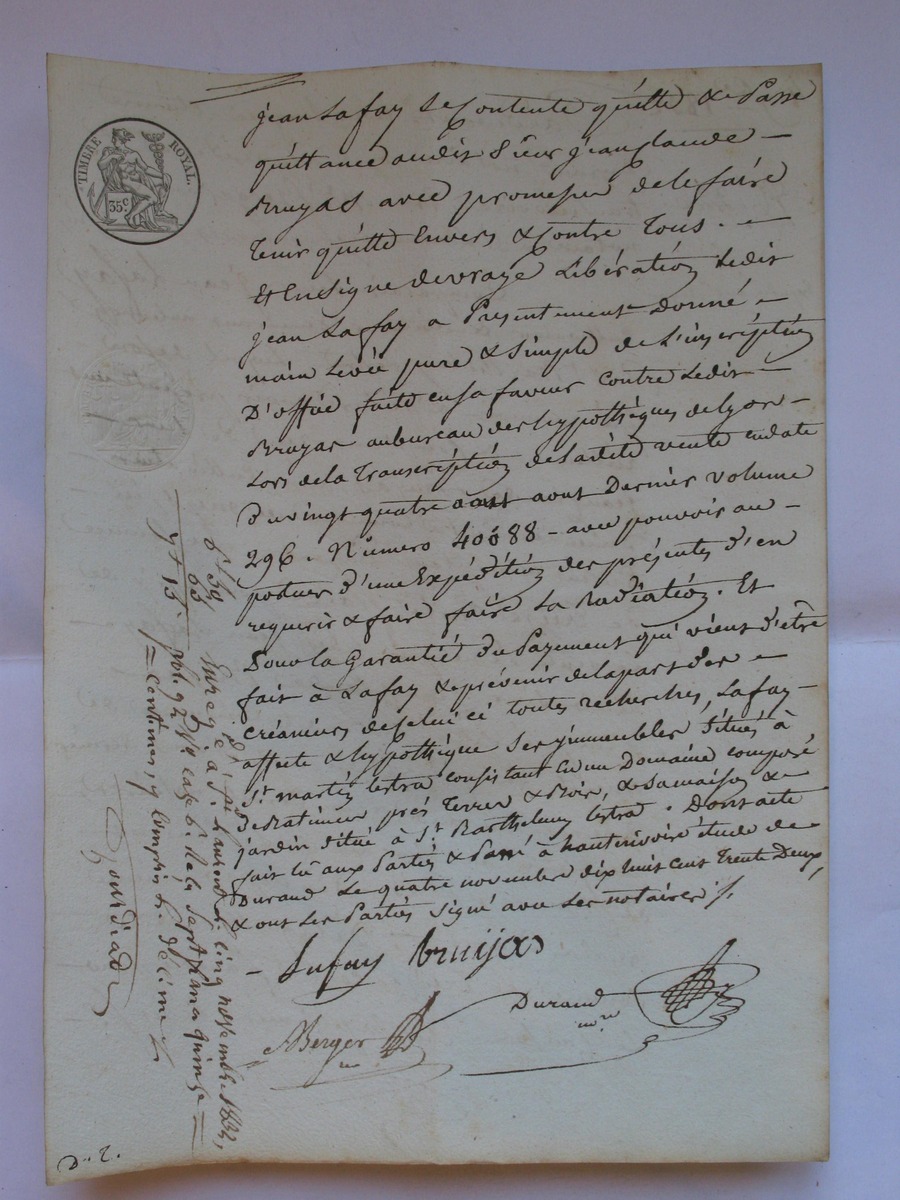 TIMBRE ROYAL.
35c
jean Lafay Se Contente quitte & Passe
quittance audit Sieur jean claude –
Bruyas avec promesse de le faire
Tenir quitte Envers & Contre Tous. –
Et En Signe de vraye Libération Ledit
jean Lafay a Presentement Donné –
main Levée pure & Simple de L'inscription
D'office faite en Sa faveur contre Ledit –
Bruyas au bureau des hypothèques de Lyon –
Lors de la Transcription de Ladite vente en date
Du vingt quatre aout Dernier volume
296. Numero 40 88 – avec pouvoir au –
porteur d'une Expédition des présentes d'en
requerir & faire faire La Radiation. Et
Sous la Garantie Du Payement qui vient d'être
fait à Lafay & prévenir de la part des –
Créanciers de Celui ci toutes recherches, Lafay –
affecte & hypothèque Ses immeubles Situés à
St. martin Lestra consistant En un Domaine composé
De Batimens prés Terres & Bois, & Sa maison &
jardin Situé à St. Barthelemy Lestra. Dont acte
fait lû aux Parties & Passé à hauterivoire étude de
Durand Le quatre novembre dix huit cent Trente Deux,
& ont Les Parties Signé avec Les notaires ./.
– Lafay bruijas
Durand
nre
Berger
6f 59
63
7f 13
Enregé. à St. Laurent le cinq novembre 1832,
fol. 92 case 6. Reçu Sept francs quinze
centimes, y compris le Décime
D.. 2.